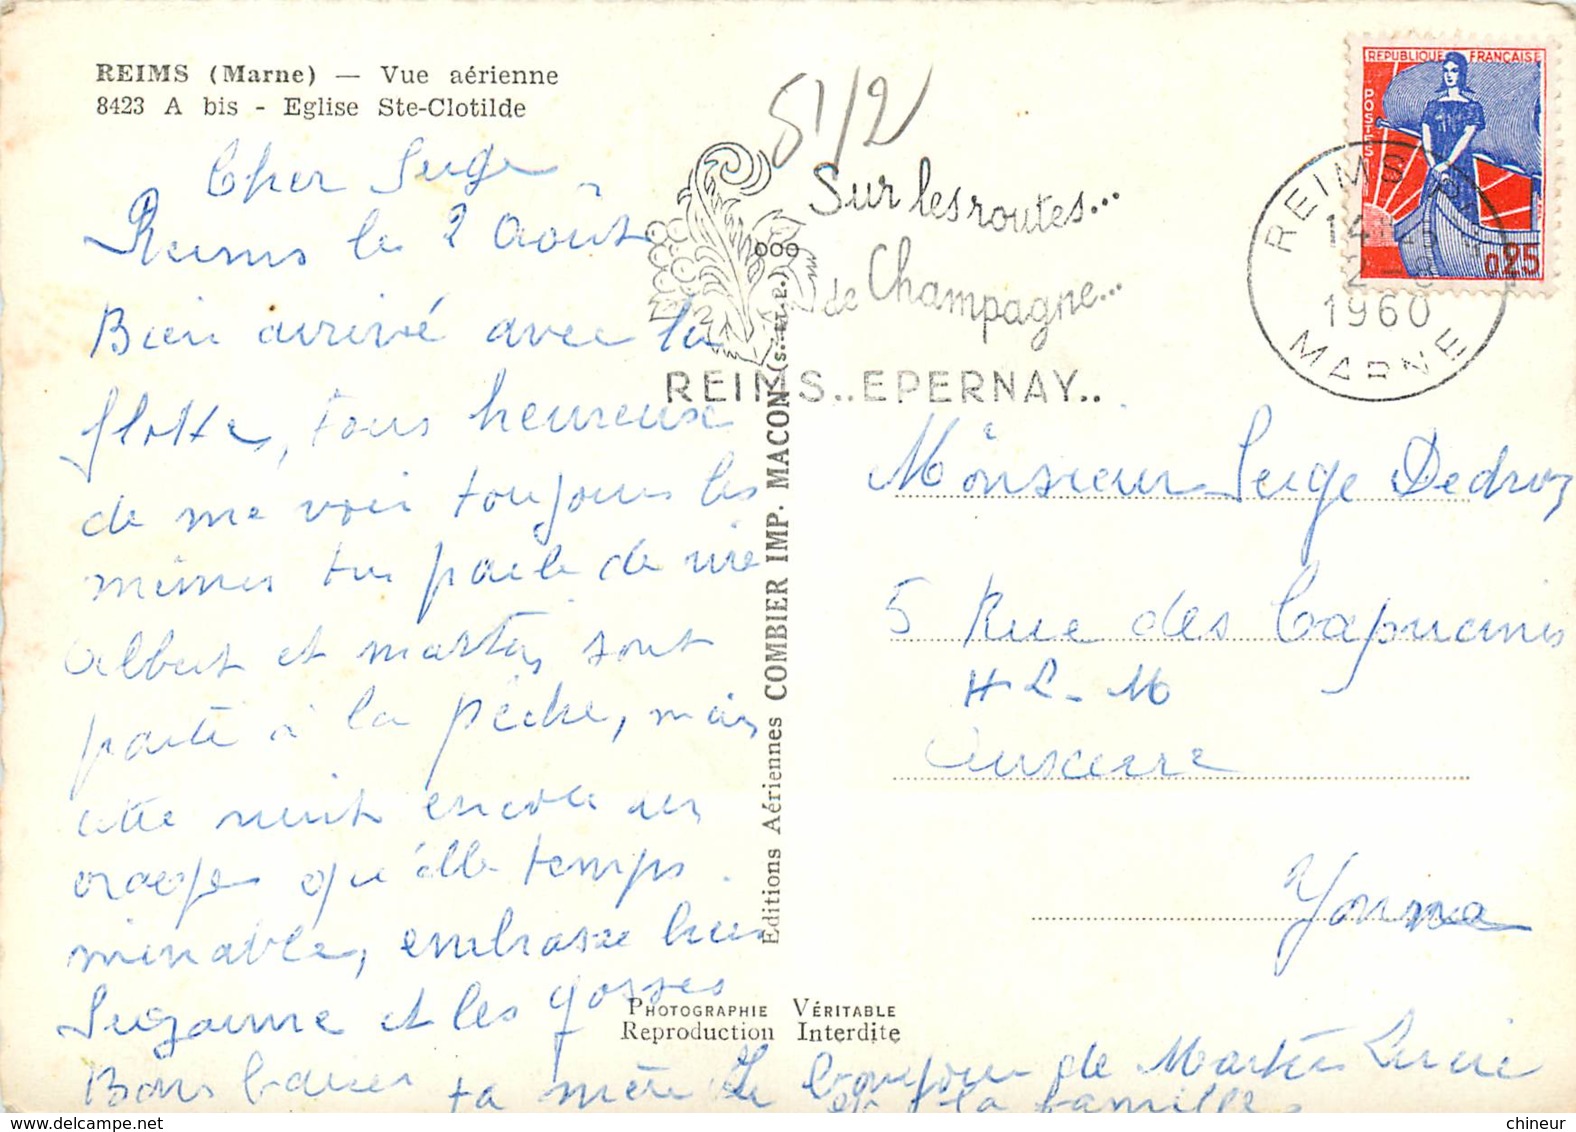 REIMS (Marne) — Vue aérienne
8423 A bis - Eglise Ste-Clotilde
51/2
Cher Serge
Reims le 2 Août
Bien arrivé avec la
flotte, tous heureux
de me voir toujours les
mêmes tu parle de vie
Albert et sont
parti à la pêche, mais
cette nuit encore un
orage qu'elle temps
minable, embrasse bien
Suzanne et les gosses
Bons baiser ta mère Le bonjour de Lucie
et la famille
Sur les routes...
de Champagne...
REIMS..EPERNAY..
REPUBLIQUE FRANÇAISE
POSTES
0,25
REIMS
14
2-8
1960
MARNE
Monsieur Serge Dedroz
5 Rue des Capucins
H L-M
Auxerre
Yonne
Editions Aériennes COMBIER IMP. MACON (S.-et-L.)
PHOTOGRAPHIE VÉRITABLE
Reproduction Interdite
chineur